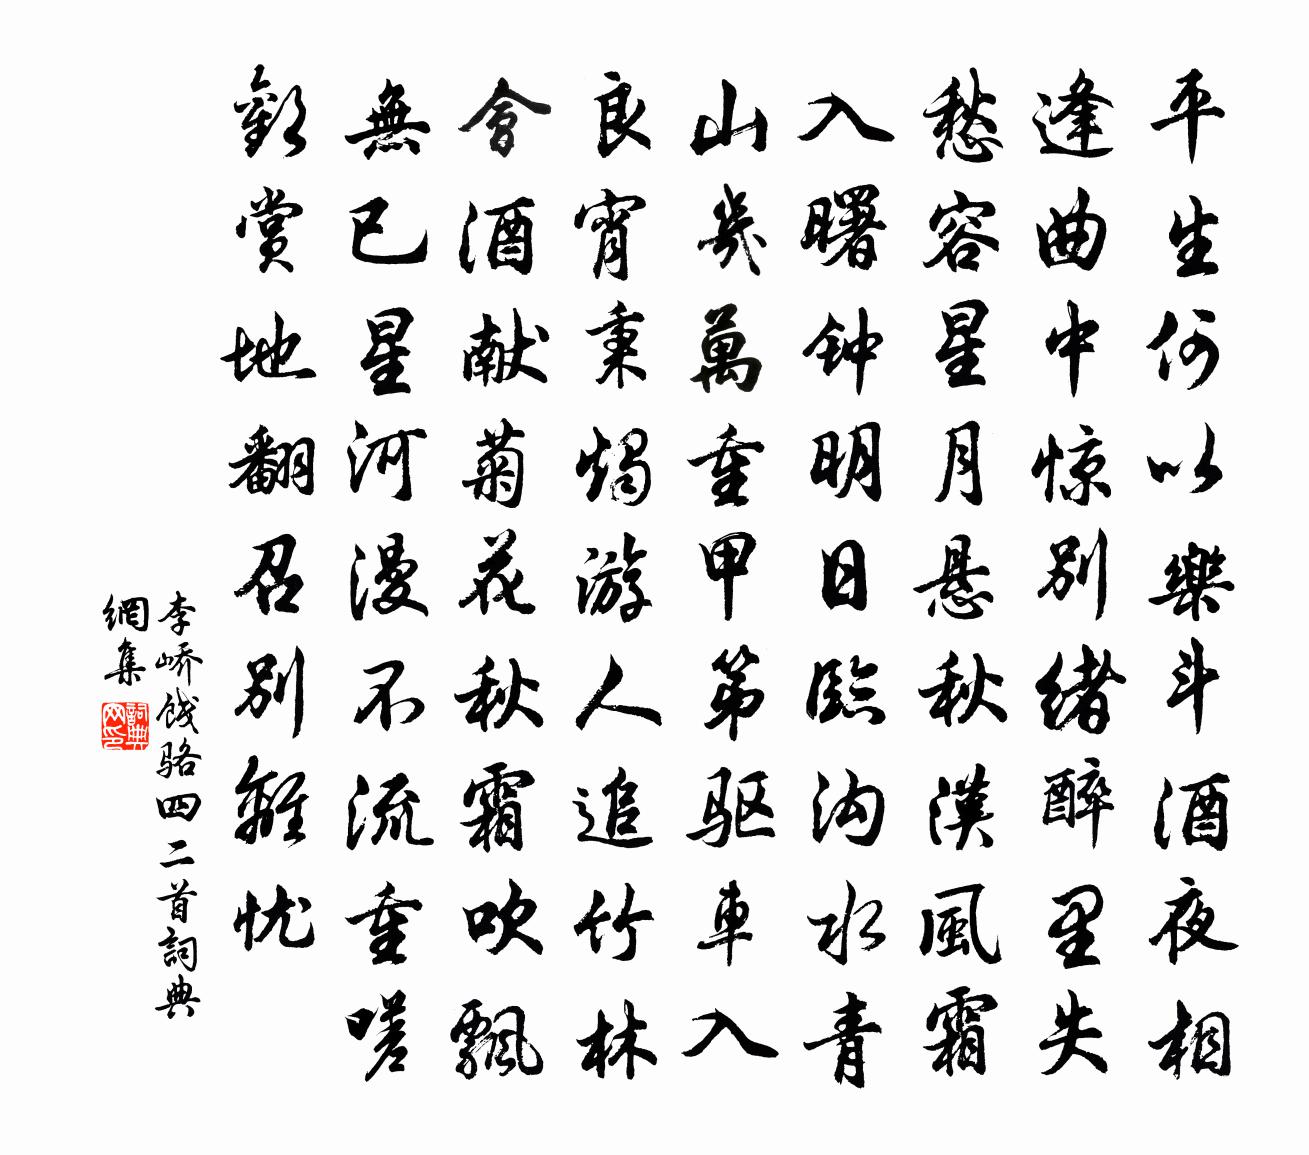 平生何以樂斗酒夜相
逢曲中惊别緒醉里失
愁容星月悬秋漢風霜
入曙钟明日臨沟水青
山幾萬重甲第驱車入
良宵秉燭游人追竹林
會酒献菊花秋霜吹飄
無已星河漫不流重嗟
歡賞地翻召别離忧
李峤饯骆四二首詞典
網集
詞典
网印